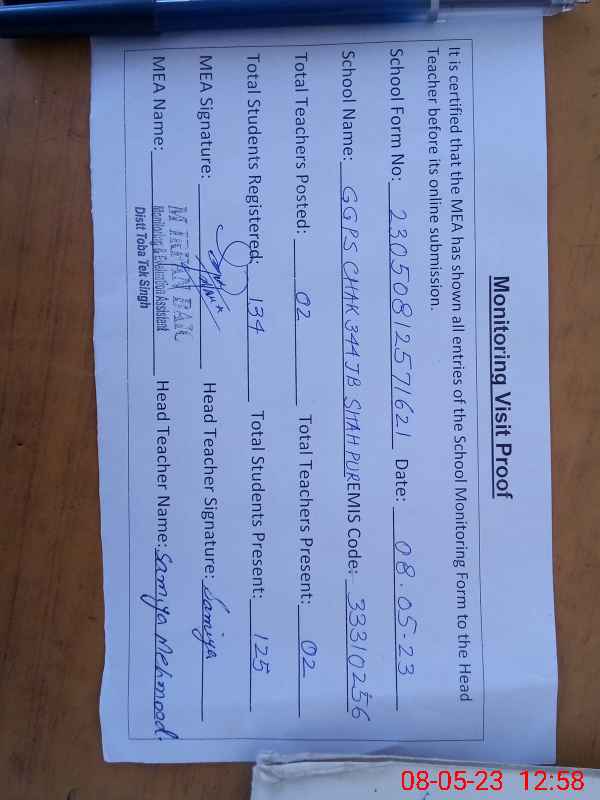 Monitoring Visit Proof
It is certified that the MEA has shown all entries of the School Monitoring Form to the Head
Teacher before its online submission.
School Form No: 23050812571621 Date: 08.05.23
School Name: GGPS CHAK 344JB SHAHPUR EMIS Code: 33310256
Total Teachers Posted: 02 Total Teachers Present: 02
Total Students Registered: 134 Total Students Present: 125
MEA Signature: Head Teacher Signature: Samiya
MEA Name: M IRFAN Head Teacher Name: Samiya Mehmood.
Monitoring & Evaluation Assistent
Distt Toba Tek Singh
08-05-23 12:58